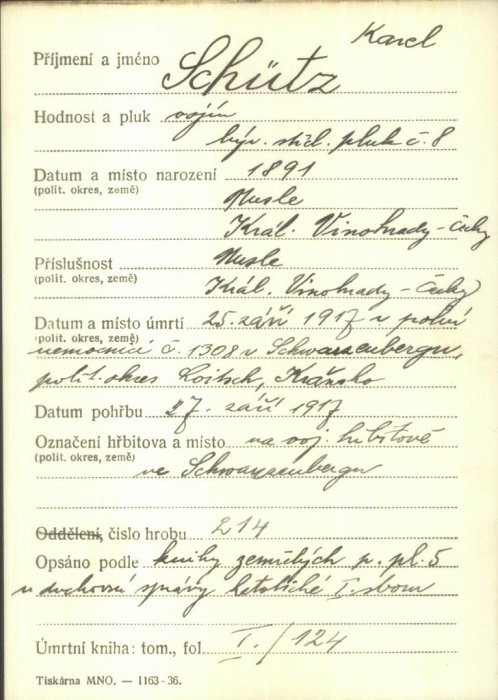 Karel
Příjmení a jméno Schütz
Hodnost a pluk vojín
býv. střel. pluk č. 8
Datum a místo narození 1891
(polit. okres, země) Nusle
Král. Vinohrady - Čechy
Příslušnost Nusle
(polit. okres, země) Král. Vinohrady - Čechy
Datum a místo úmrtí 25. září 1917 v polní
(polit. okres, země)
nemocnici č. 1308 v Schwarzenbergu,
polit. okres Loitsch, Kraňsko
Datum pohřbu 27. září 1917
Označení hřbitova a místo na voj. hřbitově
(polit. okres, země)
ve Schwarzenbergu
Oddělení, číslo hrobu 214
Opsáno podle knihy zemřelých p. pl. 5
u duchovní správy katolické I. sboru
Úmrtní kniha: tom., fol. I./124
Tiskárna MNO. — 1163-36.